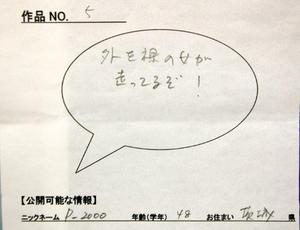 作品 NO. 5
外を裸の女が
走ってるぞ!
【公開可能な情報】
ニックネーム P-2000 年齢(学年) 48 お住まい 茨城 県